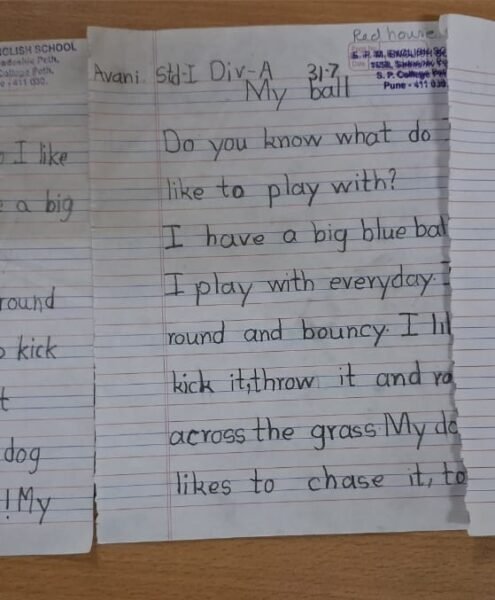 GLISH SCHOOL
Peth,
College Poth,
411 030.
I like
a big
round
kick
dog
! My
Red house
Avani Std-I Div-A 31-7
S. P. College
Pune - 411 030
My ball
Do you know what do
like to play with?
I have a big blue bal
I play with everyday. I
round and bouncy. I li
kick it, throw it and ro
across the grass My do
likes to chase it, to